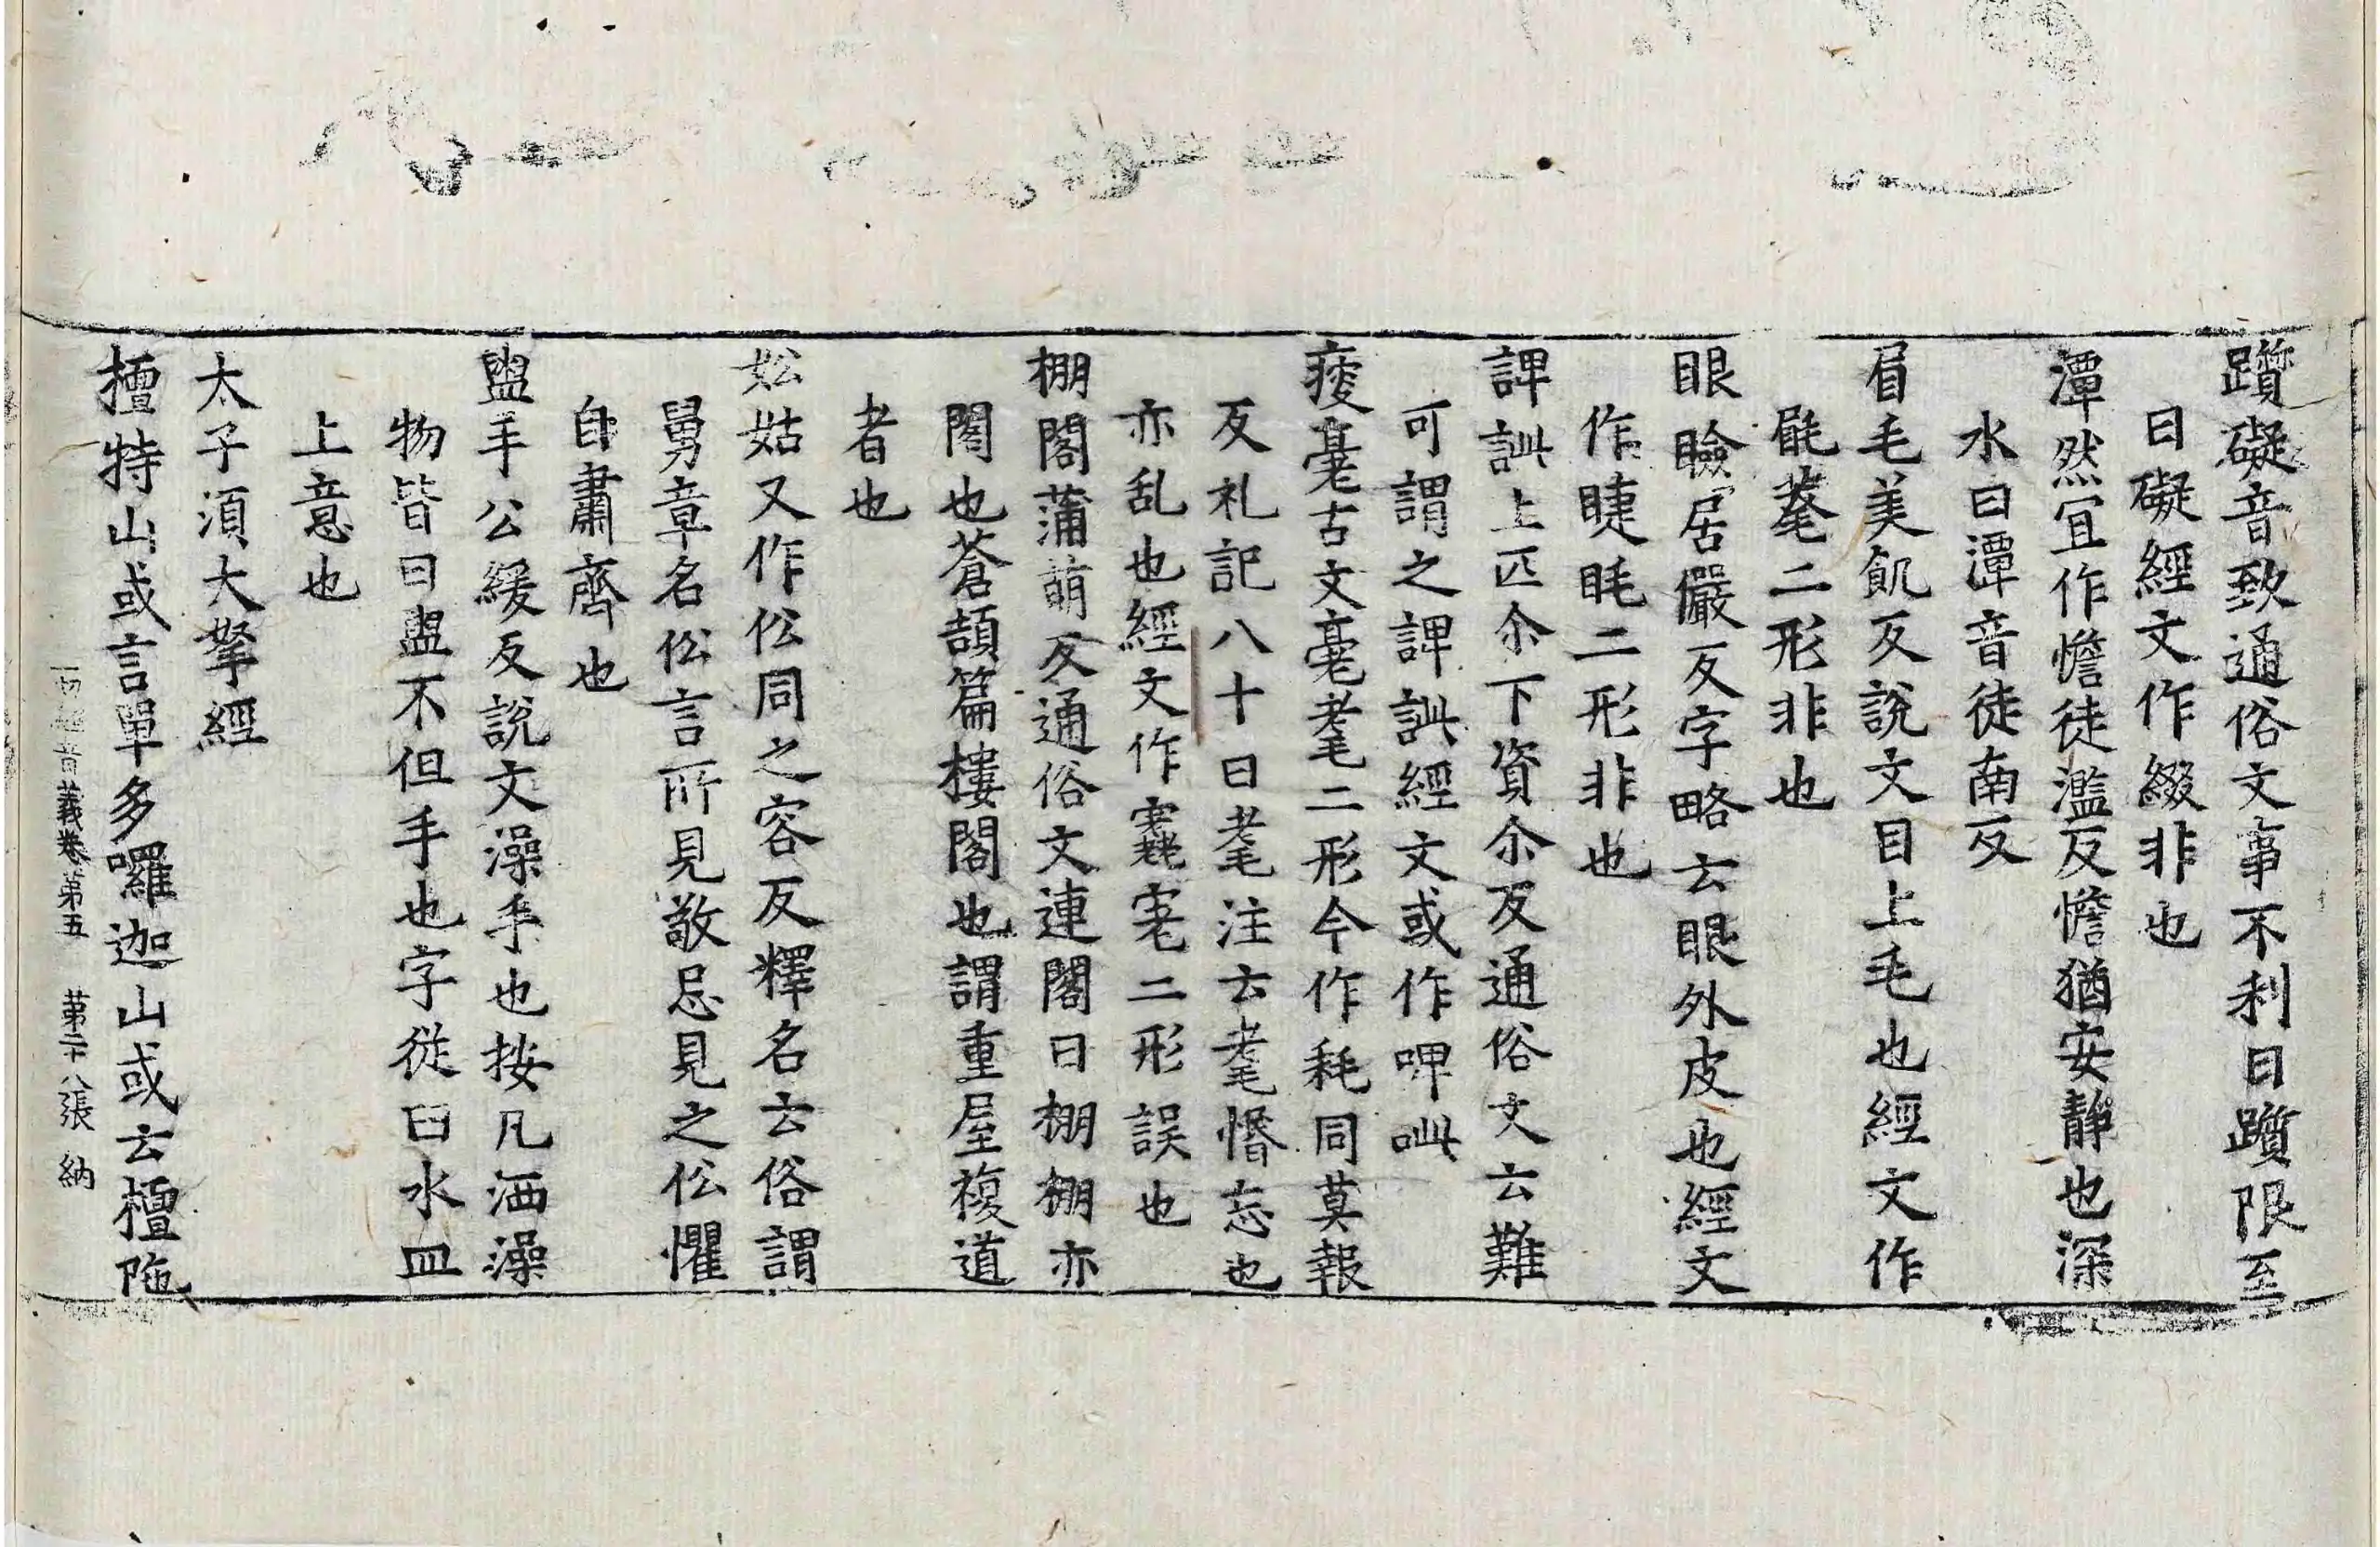 躓礙音致通俗文事不利曰躓限至
曰礙經文作綴非也
潭然宜作憺徒濫反憺猶安靜也深
水曰潭音徒南反
眉毛美飢反說文目上毛也經文作
二形非也
眼瞼居儼反字略云眼外皮也經文
作睫毦二形非也
諀訿上匹尒下資尒反通俗文云難
可謂之諀訿經文或作啤呲
痿耄古文耄耄二形今作耗同莫報
反礼記八十曰耄注云耄惛忘也
亦乱也經文作二形誤也
棚閣蒲萌反通俗文連閣曰棚棚亦
閣也蒼頡篇樓閣也謂重屋複道
者也
妐姑又作伀同之容反釋名云俗謂
舅章名伀言所見敬忌見之伀懼
自肅齊也
盥手公緩反說文澡手也按凡洒澡
物皆曰盥不但手也字從臼水皿
上意也
太子須大拏經
檀特山或言單多囉迦山或云檀陁
一切經音義卷第五 第二十八張 納